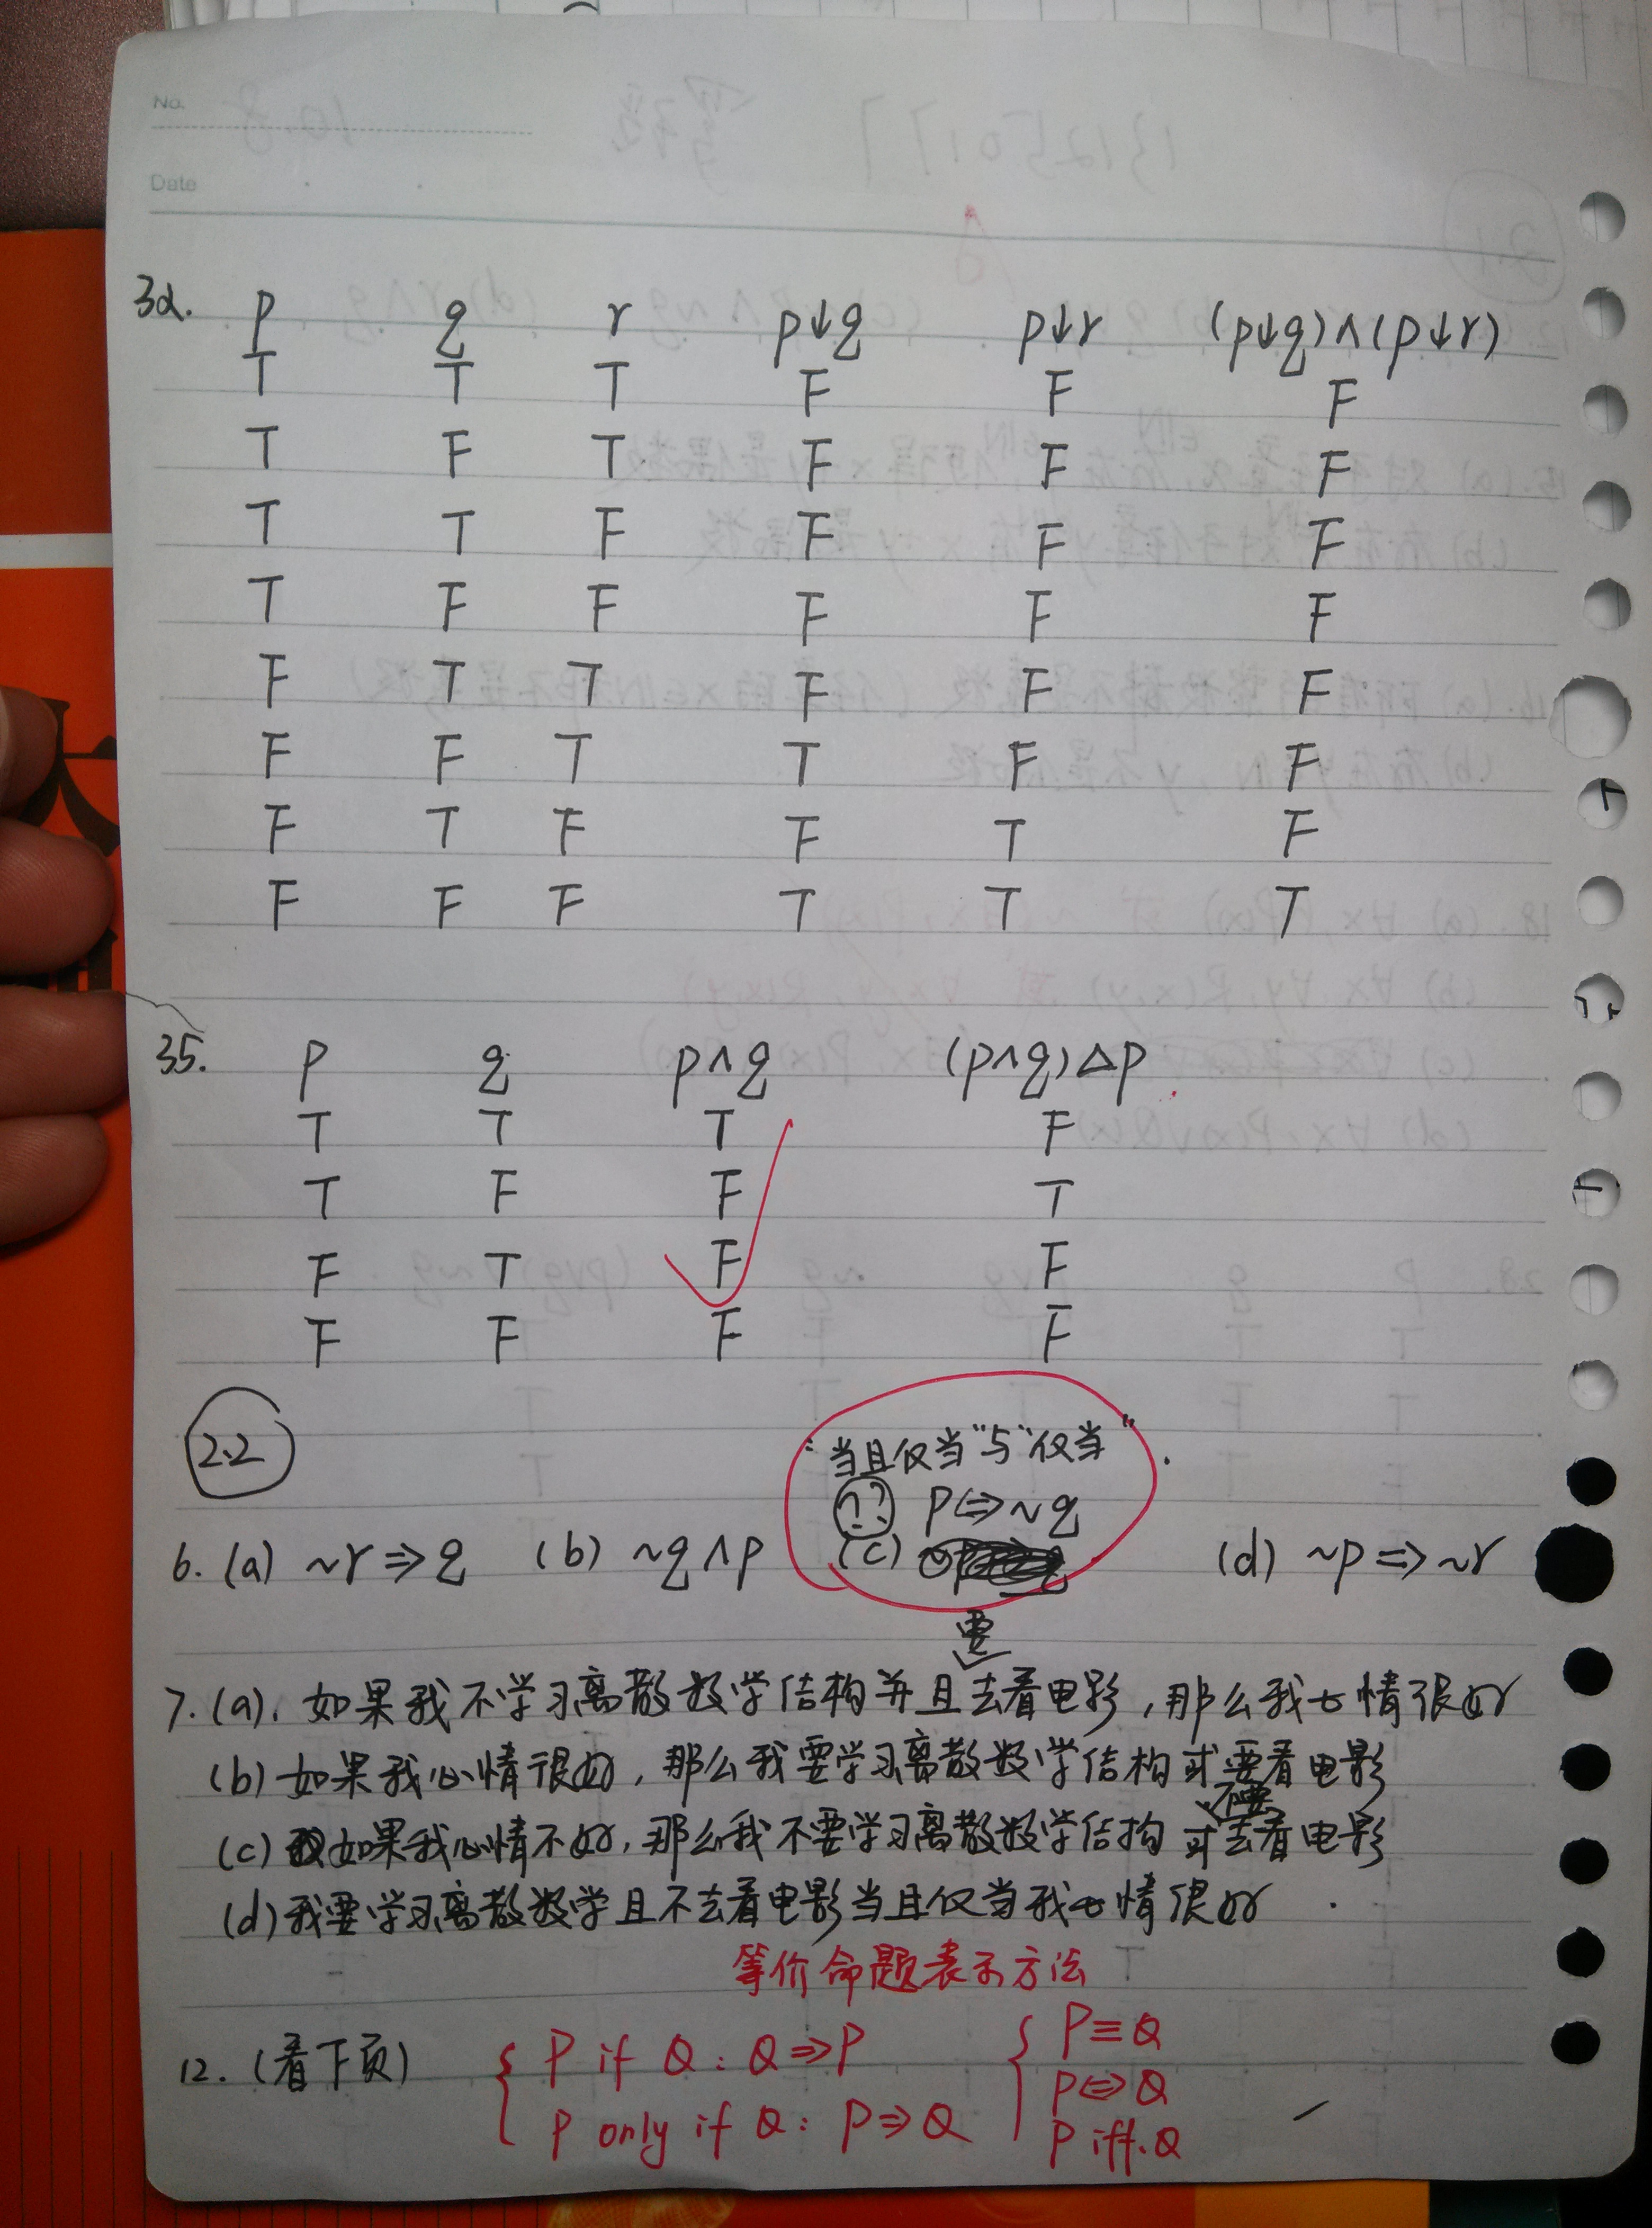 No.
Date
32. p q r p↓q p↓r (p↓q)∧(p↓r)
T T T F F F
T F T F F F
T T F F F F
T F F F F F
F T T F F F
F F T T F F
F T F F T F
F F F T T T
35. p q p∧q (p∧q)△p
T T T F
T F F T
F T F F
F F F F
2.2
"当且仅当"与"仅当".
?? p⇔~q
6. (a) ~r⇒q (b) ~q∧p (c) (d) ~p⇒~r
要
7. (a). 如果我不学习离散数学结构并且去看电影,那么我心情很好
(b) 如果我心情很好,那么我要学习离散数学结构或要看电影
不要
(c) 如果我心情不好,那么我不要学习离散数学结构或去看电影
(d) 我要学习离散数学且不去看电影当且仅当我心情很好.
等价命题表示方法
12. (看下页) { P if Q: Q⇒P { P≡Q
P⇔Q
P only if Q: P⇒Q P iff. Q